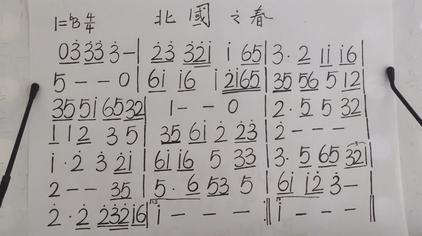 1=♭B 4/4 北國之春
03̇3̇3̇ 3̇–| 2̇3̇ 3̇2̇i̇ i̇ 65| 3·2 1̇1̇ i̇6
5 – – 0 | 6i̇ i̇6 i̇ 2̇i̇65| 35 56 5 12
35 5i̇ 6532| 1 – – 0 | 2·5 5 32
1 12 3 5 | 35 6i̇ 2̇ 2̇3̇| 2̇ – – –
i̇·2̇ 3̇ 2̇i̇| 6i̇ i̇6 5 33| 3·5 65 32|
2 – – 35| 5·6 53 5 | 6i̇ i̇2̇ 3̇–
2̇·2̇ 2̇3̇2̇i̇6| i̇ – – – :‖ i̇ – – – ‖